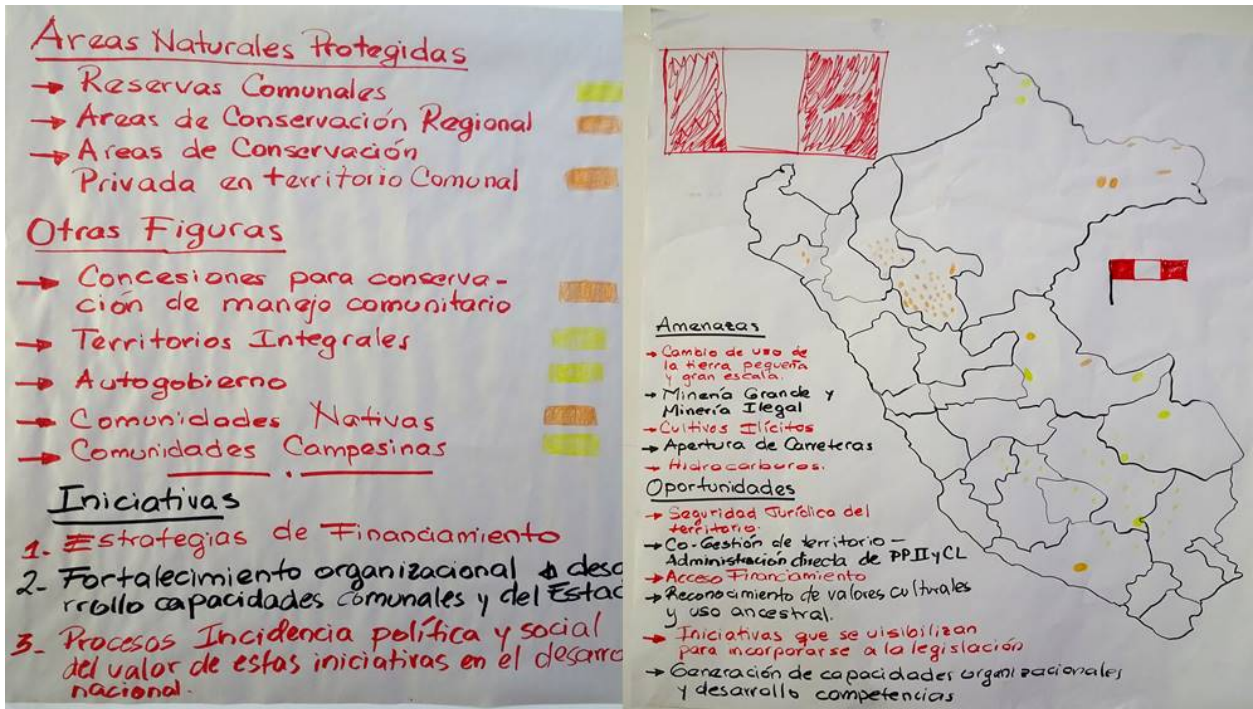 Areas Naturales Protegidas
→ Reservas Comunales
→ Areas de Conservación Regional
→ Areas de Conservación
Privada en territorio Comunal
Otras Figuras
→ Concesiones para conserva-
ción de manejo comunitario
→ Territorios Integrales
→ Autogobierno
→ Comunidades Nativas
→ Comunidades Campesinas
Iniciativas
1- Estrategias de Financiamiento
2- Fortalecimiento organizacional desa
rrollo capacidades comunales y del Estad
3- Procesos Incidencia política y social
del valor de estas iniciativas en el desarro
nacional.
Amenazas
→ Cambio de uso de
la tierra pequeña
y gran escala.
→ Minería Grande y
Minería Ilegal
→ Cultivos Ilícitos
→ Apertura de Carreteras
→ Hidrocarburos.
Oportunidades
→ Seguridad Jurídica del
territorio.
→ Co-Gestión de territorio -
Administración directa de PPII y CL
→ Acceso Financiamiento
→ Reconocimiento de valores culturales
y uso ancestral.
→ Iniciativas que se visibilizan
para incorporarse a la legislación
→ Generación de capacidades organizacionales
y desarrollo competencias